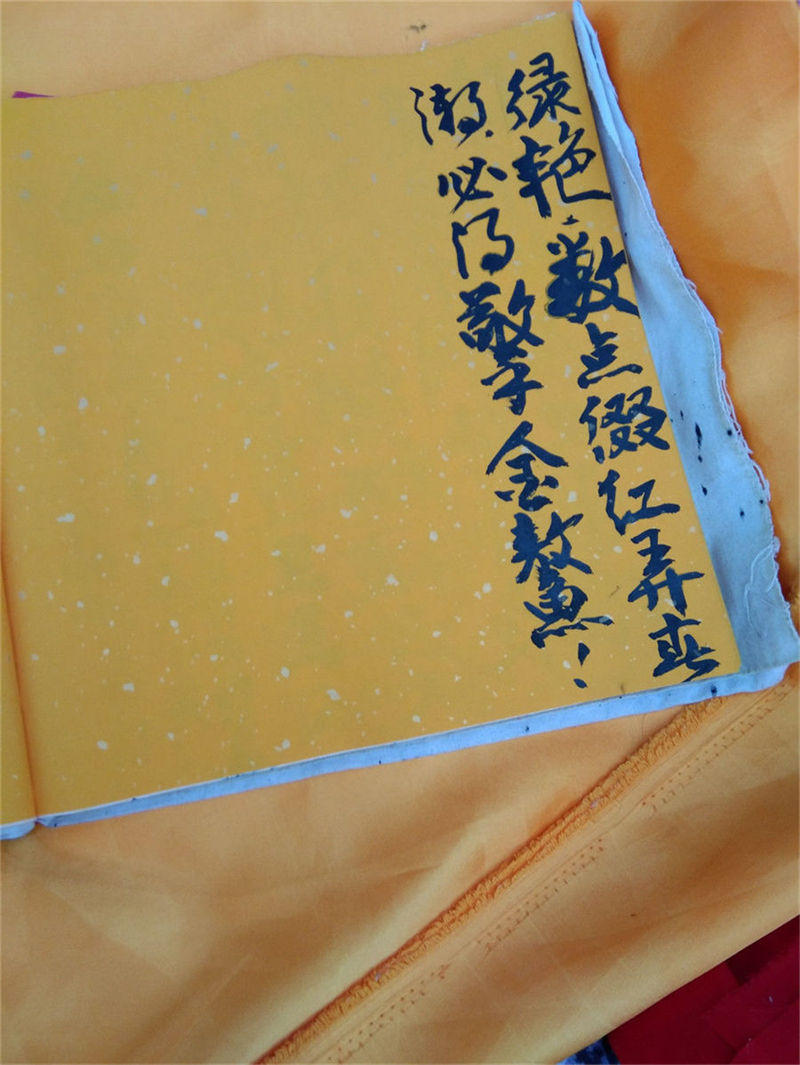 绿艳数点缀红弄春
潮必得擎金鳌！